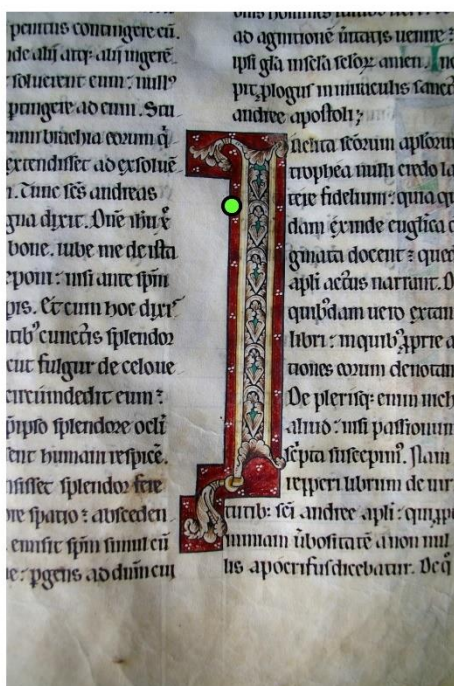 penitus contingere eū.
nde alij atq: alij ingerē
soluerent eum: null⁹
ptingere ad eum. Stu
enim brachia eorum q̄
extendisset ad exsoluē
. Tunc scs̄ andreas
gna dixit. Dn̄e ih̄u x̄
bone. iube me de ista
eponi: nisi ante sp̄m
pis. Et cum hoc dixi
tib⁹ cunctis splendor
cut fulgur de celo ue
circūndedit eum:
p̄ ipso splendore ocli
ent humani respicē.
sisset splendor fere
ore spatio: absceden
emisit sp̄m simul cū
e: pgens ad dn̄m cui
ad agnitionē ūitatis uenire:
ip̄i gl̄a in sc̄la sc̄lor amen.
plogus in miraculis sancti
andree apostoli;
Inclita sc̄orum ap̄lorum
trophea nulli credo la
tere fidelium: quia qu
dam exinde euḡlica d
gmata docent: qued
apl̄i actus narrant. D
quibdam uero extan
libri: in quib⁹ xprie a
tiones eorum denotan
De plerisq: enim nich
aliud: nisi passionum
sc̄pta suscepim⁹. Nam
repperi librum de uir
tutib: sc̄i andree apl̄i: qui xp
nimiam ūbositatē a non nul
lis apocrifus dicebatur. De q